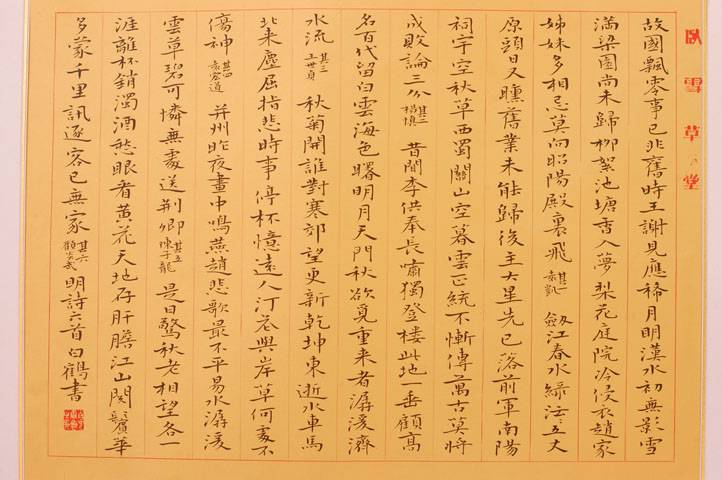 卧雪草堂
故國飄零事已非舊時王謝見應稀月明漢水初無影雪
滿梁園尚未歸柳絮池塘香入夢梨花庭院冷侵衣趙家
姊妹多相忌莫向昭陽殿裏飛其一袁凱劍江春水綠沄沄五丈
原頭日又曛舊業未能歸後主大星先已落前軍南陽
祠宇空秋草西蜀關山空暮雲正統不慚傳萬古莫將
成敗論三分其二楊慎昔聞李供奉長嘯獨登樓此地一垂顧高
名百代留白雲海色曙明月天門秋欲覓重來者潺湲濟
水流其三王世貞秋菊開誰對寒郊望更新乾坤東逝水車馬
北來塵屈指悲時事停杯憶遠人汀花與岸草何處不
傷神其四袁宏道并州昨夜畫中鳴燕趙悲歌最不平易水潺湲
雲草碧可憐無處送荊卿其五陳子龍是日驚秋老相望各一
涯離杯銷濁酒愁眼看黃花天地存肝膽江山閱鬢華
多蒙千里訊逐客已無家其六顧炎武明詩六首白鶴書